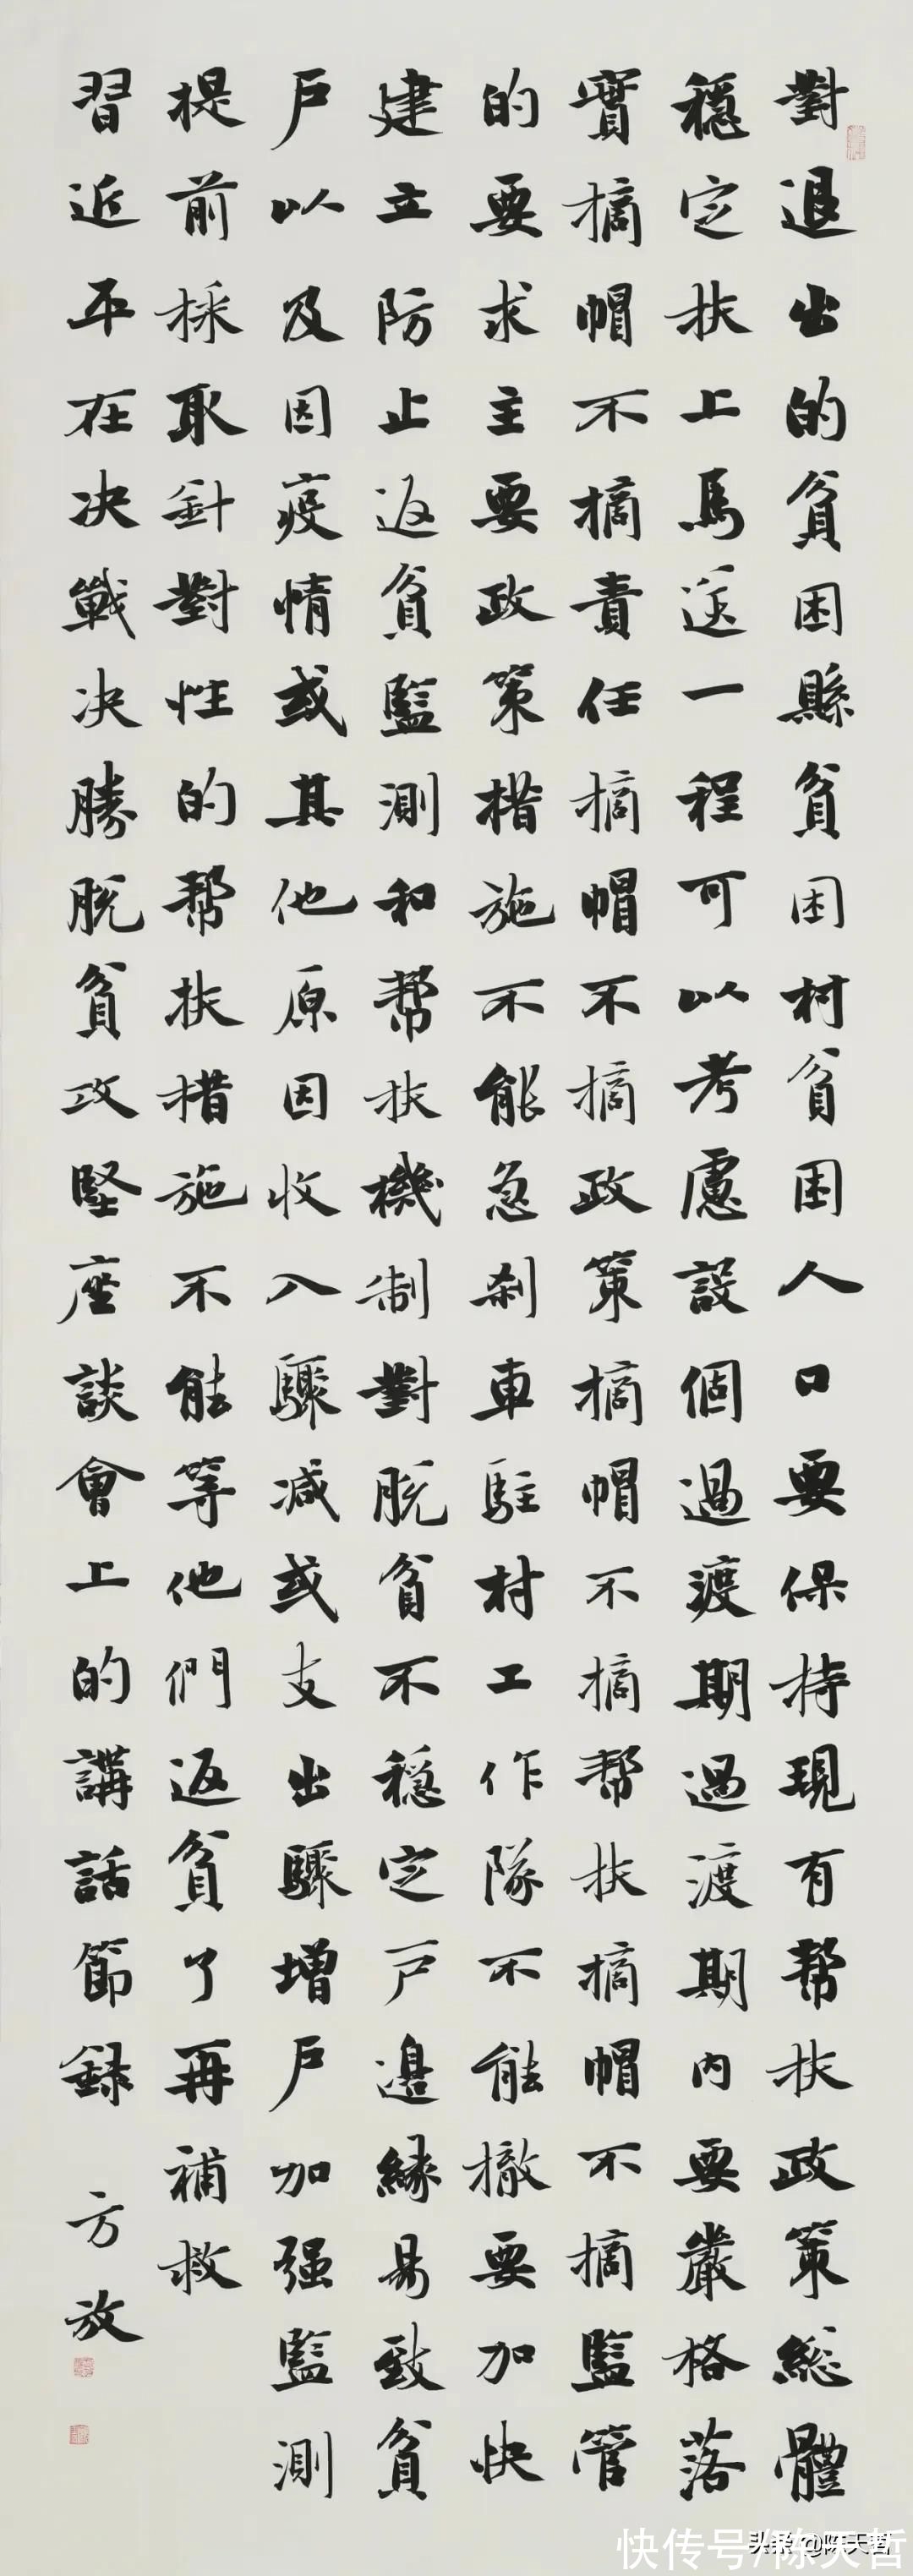 對退出的貧困縣貧困村貧困人口要保持現有帮扶政策總體
穩定扶上馬送一程可以考慮設個過渡期過渡期内要嚴格落
實摘帽不摘責任摘帽不摘政策摘帽不摘帮扶摘帽不摘監管
的要求主要政策措施不能急刹車駐村工作隊不能撤要加快
建立防止返貧監測和帮扶機制對脱貧不穩定户邊緣易致貧
户以及因疫情或其他原因收入驟减或支出驟增户加强監測
提前採取針對性的帮扶措施不能等他們返貧了再補救
習近平在决戰决勝脱貧攻堅座談會上的講話節録 方放
快传号/陈天哲
头条 @陈天哲